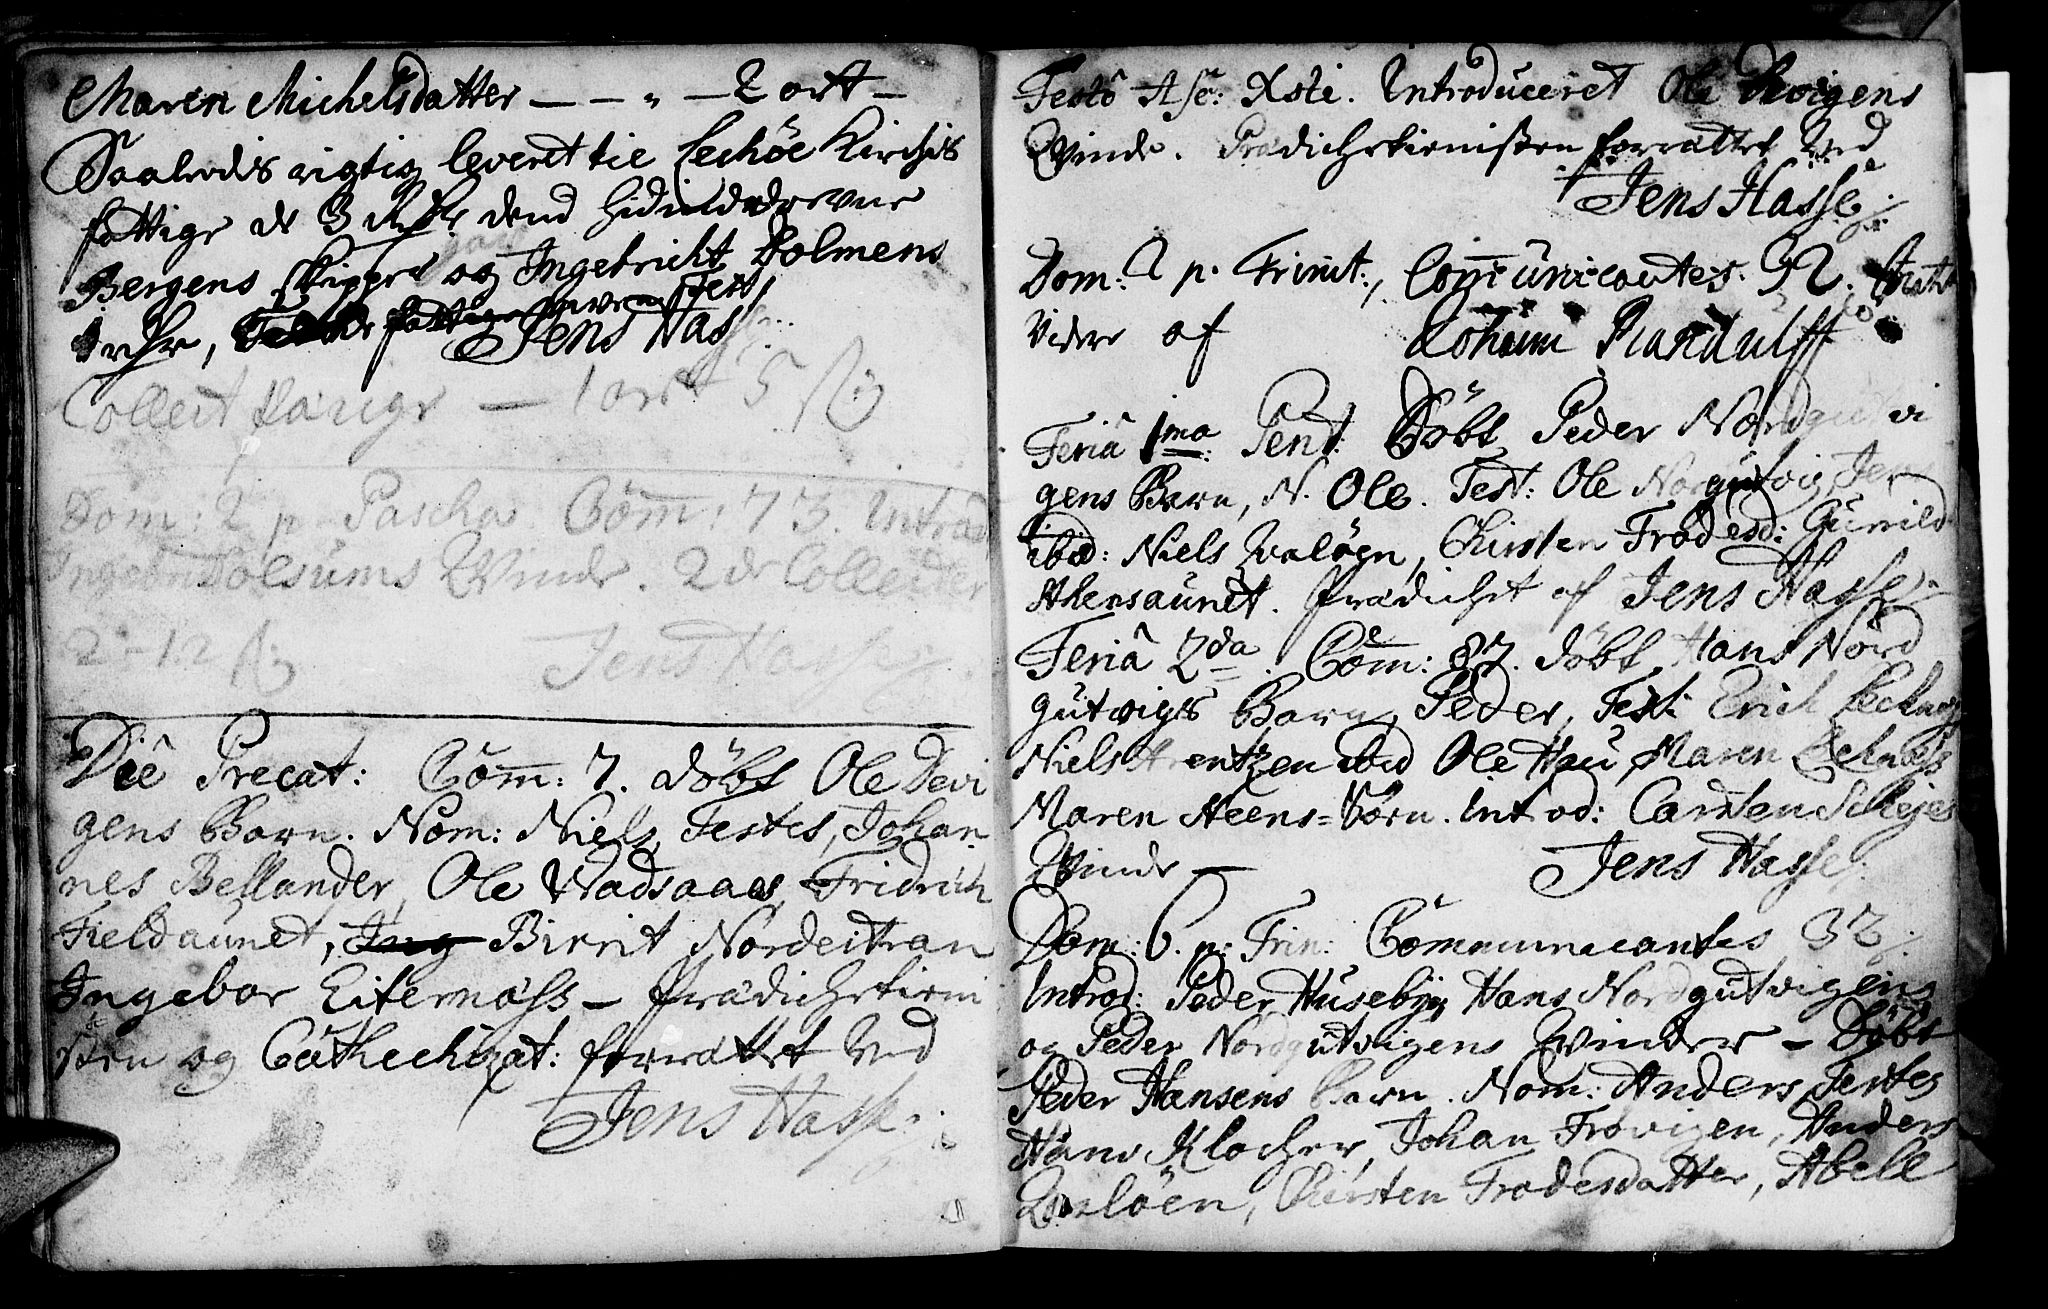 Maren Michelsdatter — — „ — 2 ort —
Saaledis rigtig leveret til Lechöe Kirchis
fattige de 3 Rdr dend
Bergens skipper og Ingebricht Dolmens
Test
Jens Hasse
Collect Penge — 1 ort 5 ß
Dom: 2 p. Pascha Com̄: 73. Introd
Dolsums Qvinde. 2de Collecter
2 - 12 ß Jens Hasse
Die Precat: Com̄: 7. döbt Ole Devi
gens Barn. Nom: Niels, Testes, Johan
nes Bellander, Ole Wadsaaes, Fridrich
Fieldaunet, Ing Birrit Nordeitran
Ingebor Eiternæss — Prædichetieni
sten og Cathechizat: forrættet Ved
Jens Hasse
Festo Asc: Xsti. Introduceret Ole Devigens
Qvinde. Prædichetienisten forrættet Ved
Jens Hasse
Dom: 2 p. Trinit:, Com̄unicantes. 92.
Videre af Johann Randulff
Feriâ 1ma: Pent: Döbt Peder Nordgutvi
gens Barn, N. Ole. Test: Ole Nordgutvig, Jer
ibid: Niels Qvalöen, Chirsten Frodesd: Gunild
Ahensaunet. Prædichet af Jens Hasse
Feriâ 2da. Com̄: 87. döbt Hans Nord
gutvigs Barn, Peder, Test: Erich Lechnæs
Niels Arentzen ibid Ole Hau, Maren Lechnæss
Maren Steens=Börn. Introd: Carsten Schejes
Qvinde — Jens Hasse
Dom: 6. p: Trin: Communicantes 32
Introd: Peder Husebye, Hans Nordgutvigens
og Peder Nordgutvigens Qvinder — Döbt
Peder Hansens Barn. Nom: Anders, Testes
Hans Klocher, Johan Frovigen, Anders
Qvalöen, Chirsten Frodesdatter, Abell